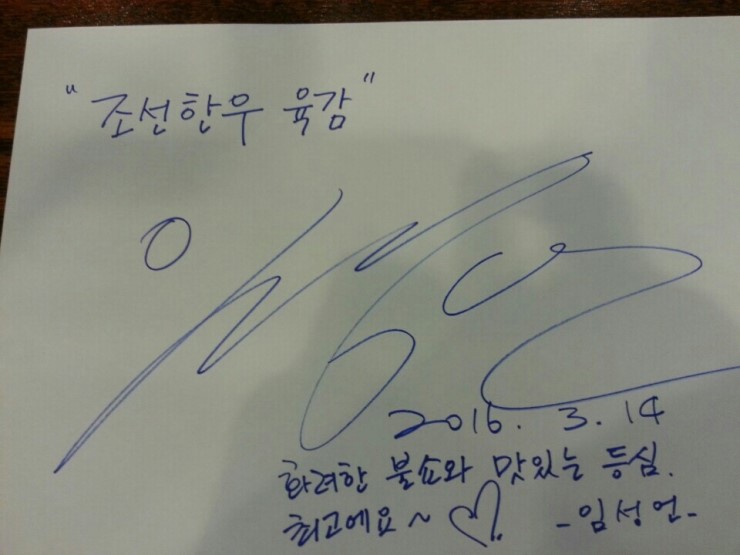 "조선한우 육감"
2016. 3. 14
화려한 불쇼와 맛있는 등심.
최고에요~ ♡. -임성언-